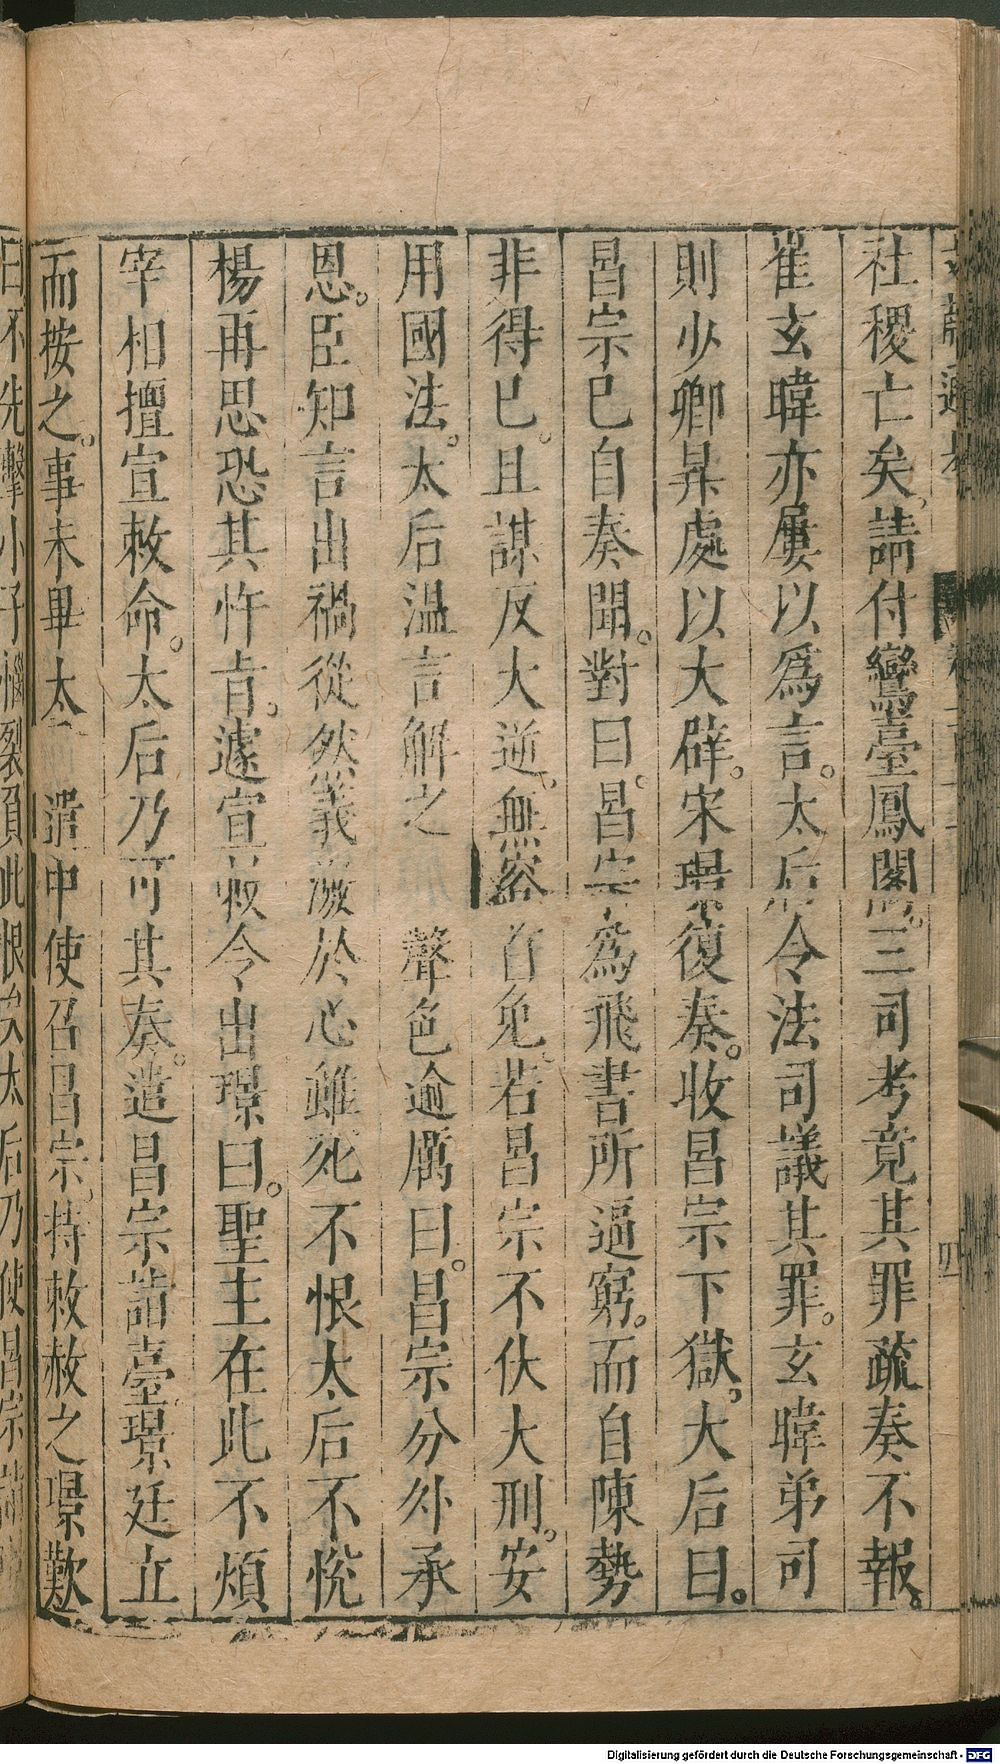 社稷亡矣。請付鸞臺鳳閣三司考竟其罪疏奏不報。
崔玄暐亦屢以爲言。太后令法司議其罪。玄暐弟司
則少卿昇處以大辟。宋璟復奏。收昌宗下獄。大后曰。
昌宗巳自奏聞。對曰。昌宗為飛書所逼窮。而自陳勢
非得巳。且謀反大逆。無容首免。若昌宗不伏大刑。安
用國法。太后溫言解之聲色逾厲曰。昌宗分外承
恩。臣知言出禍從然義激於心雖死不恨太后不悅
楊再思恐其忤旨。遽宣敕令出璟曰。聖主在此不煩
宰相擅宣敕命。太后乃可其奏。遣昌宗詣臺。璟廷立
而按之。事未畢太 遣中使召昌宗。持敕赦之璟歎
曰不先擊小子惱裂負此恨矣太后乃使昌宗
四
Digitalisierung gefördert durch die Deutsche Forschungsgemeinschaft - DFG